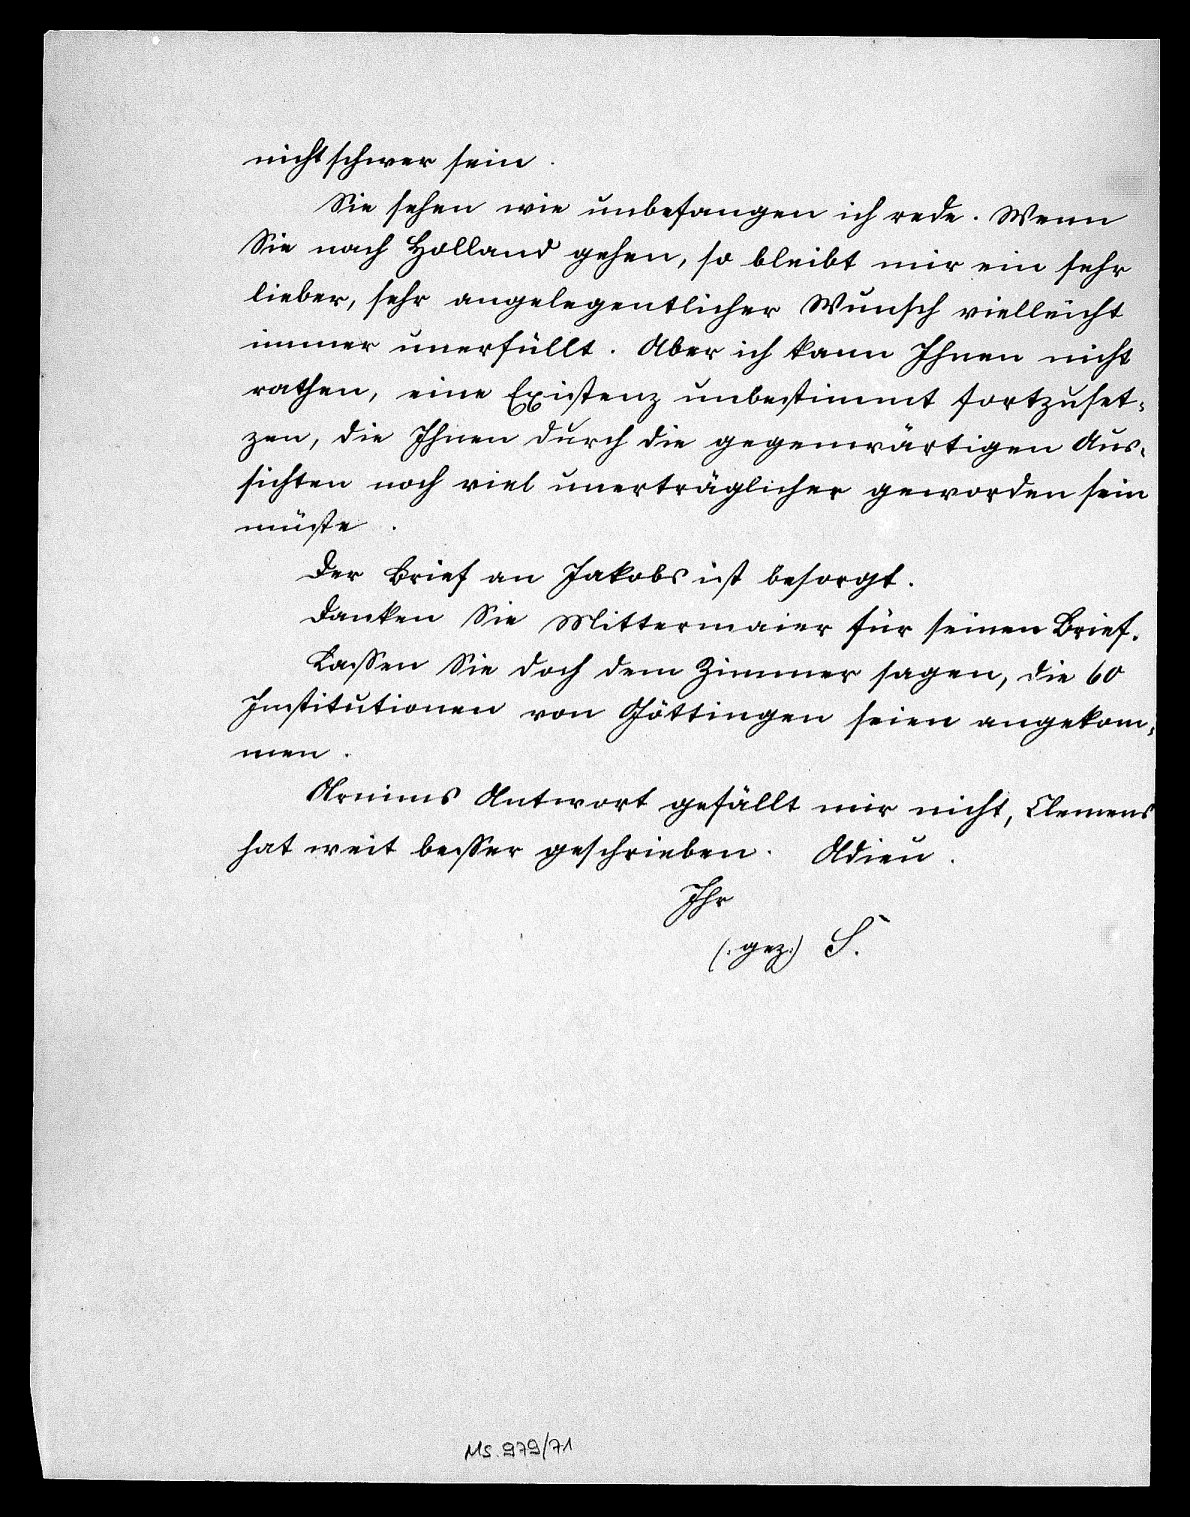 nicht schwer sein.
Sie sehen wie unbefangen ich rede. Wenn
Sie nach Holland gehen, so bleibt mir ein sehr
lieber, sehr angelegentlicher Wunsch vielleicht
immer unerfüllt. Aber ich kann Ihnen nicht
rathen, eine Existenz unbestimmt fortzuset-
zen, die Ihnen durch die gegenwärtigen Aus-
sichten noch viel unerträglicher geworden sein
müste.
Der Brief an Jakobs ist besorgt.
Danken Sie Mittermaier für seinen Brief.
Lassen Sie doch dem Zimmer sagen, die 60
Institutionen von Göttingen seien angekom-
men.
Arnims Antwort gefällt mir nicht, Clemens
hat weit besser geschrieben. Adieu.
Ihr
(: gez:) S.
Ms. 979/71